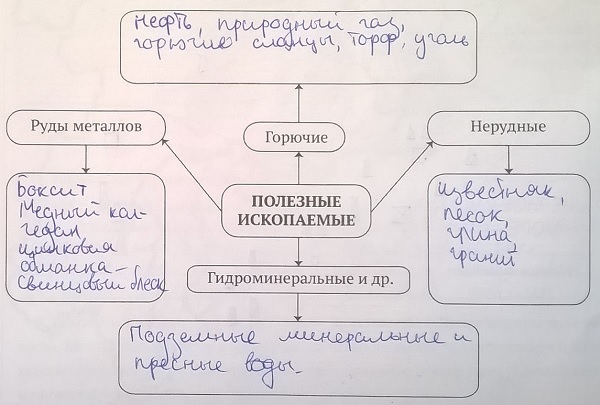 Нефть, природный газ,
горючие сланцы, торф, уголь
Руды металлов
Горючие
Нерудные
Боксит
Медный кол-
чедан,
цинковая
обманка –
Свинцовый блеск
ПОЛЕЗНЫЕ
ИСКОПАЕМЫЕ
известняк,
песок,
глина,
гранит
Гидроминеральные и др.
Подземные минеральные и
пресные воды.